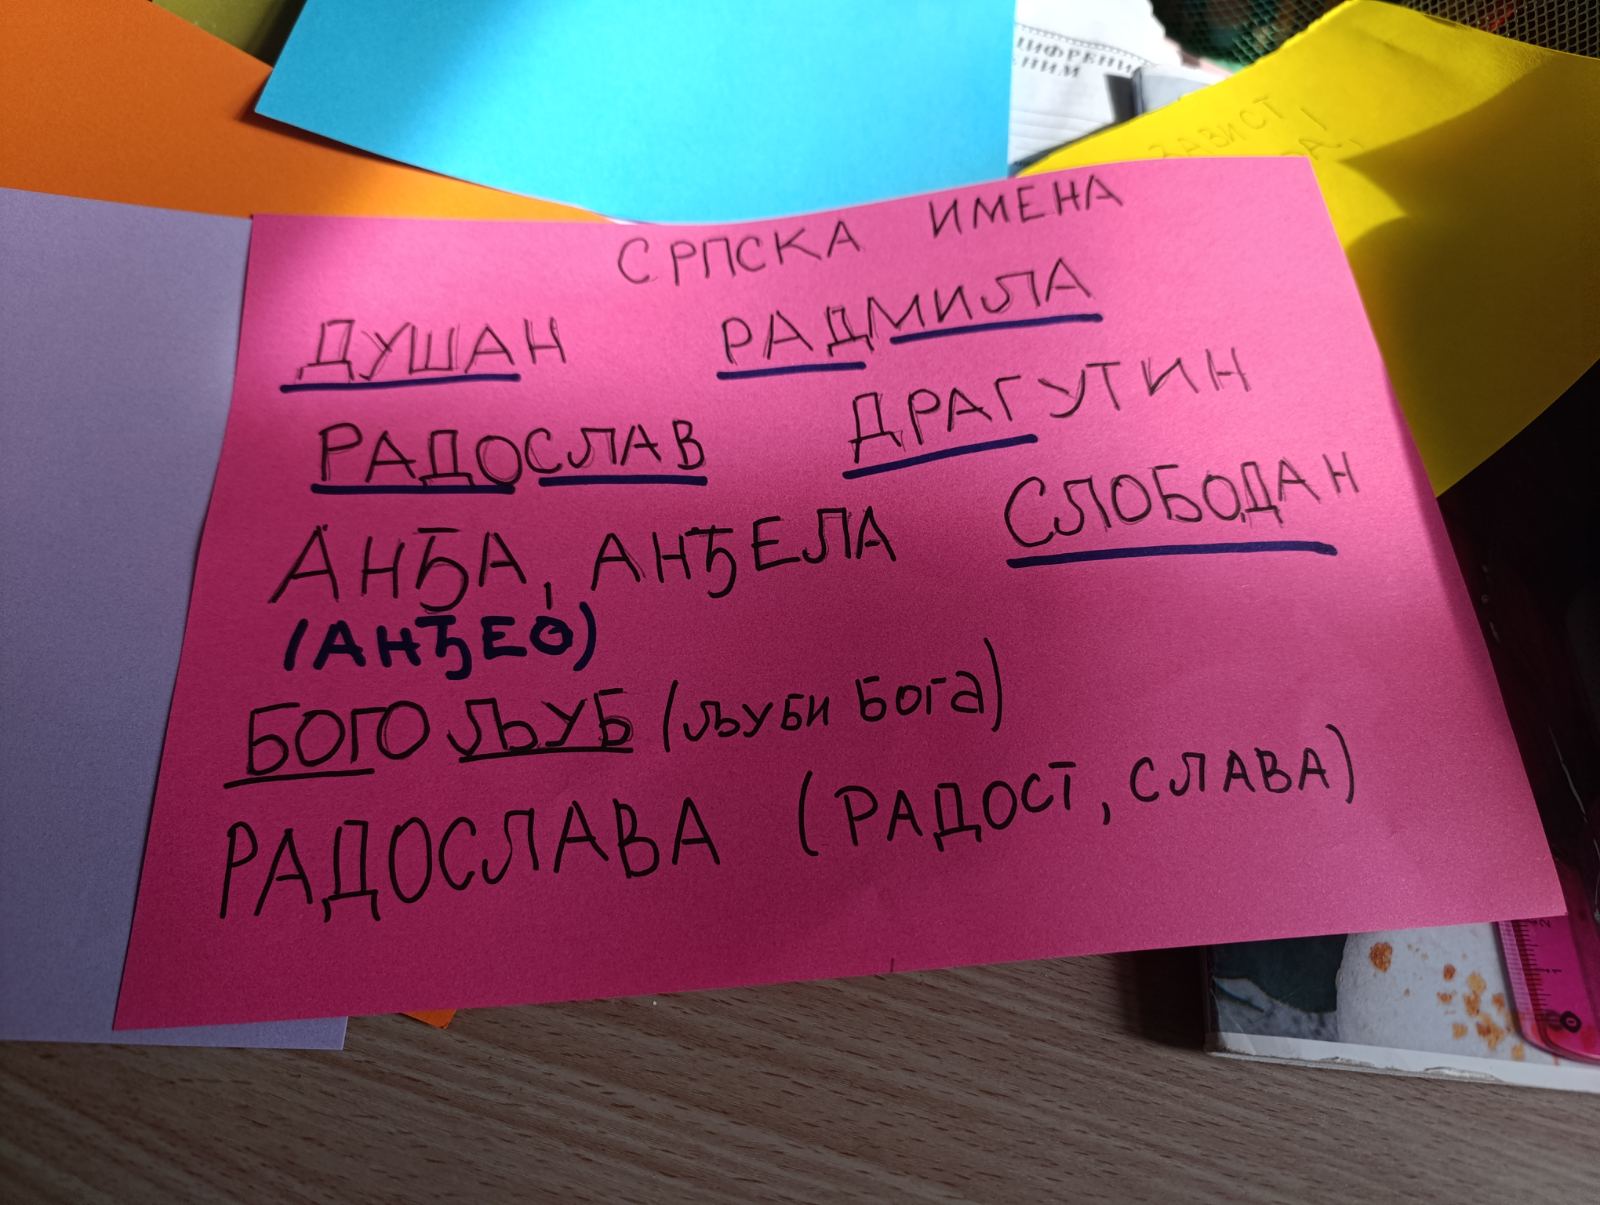 ЦИФРЕНИ
ЗАВИСТ
СРПСКА ИМЕНА
ДУШАН РАДМИЛА
РАДОСЛАВ ДРАГУТИН
АНЂА, АНЂЕЛА СЛОБОДАН
(АНЂЕО)
БОГОЉУБ (љуби Бога)
РАДОСЛАВА (РАДОСТ, СЛАВА)